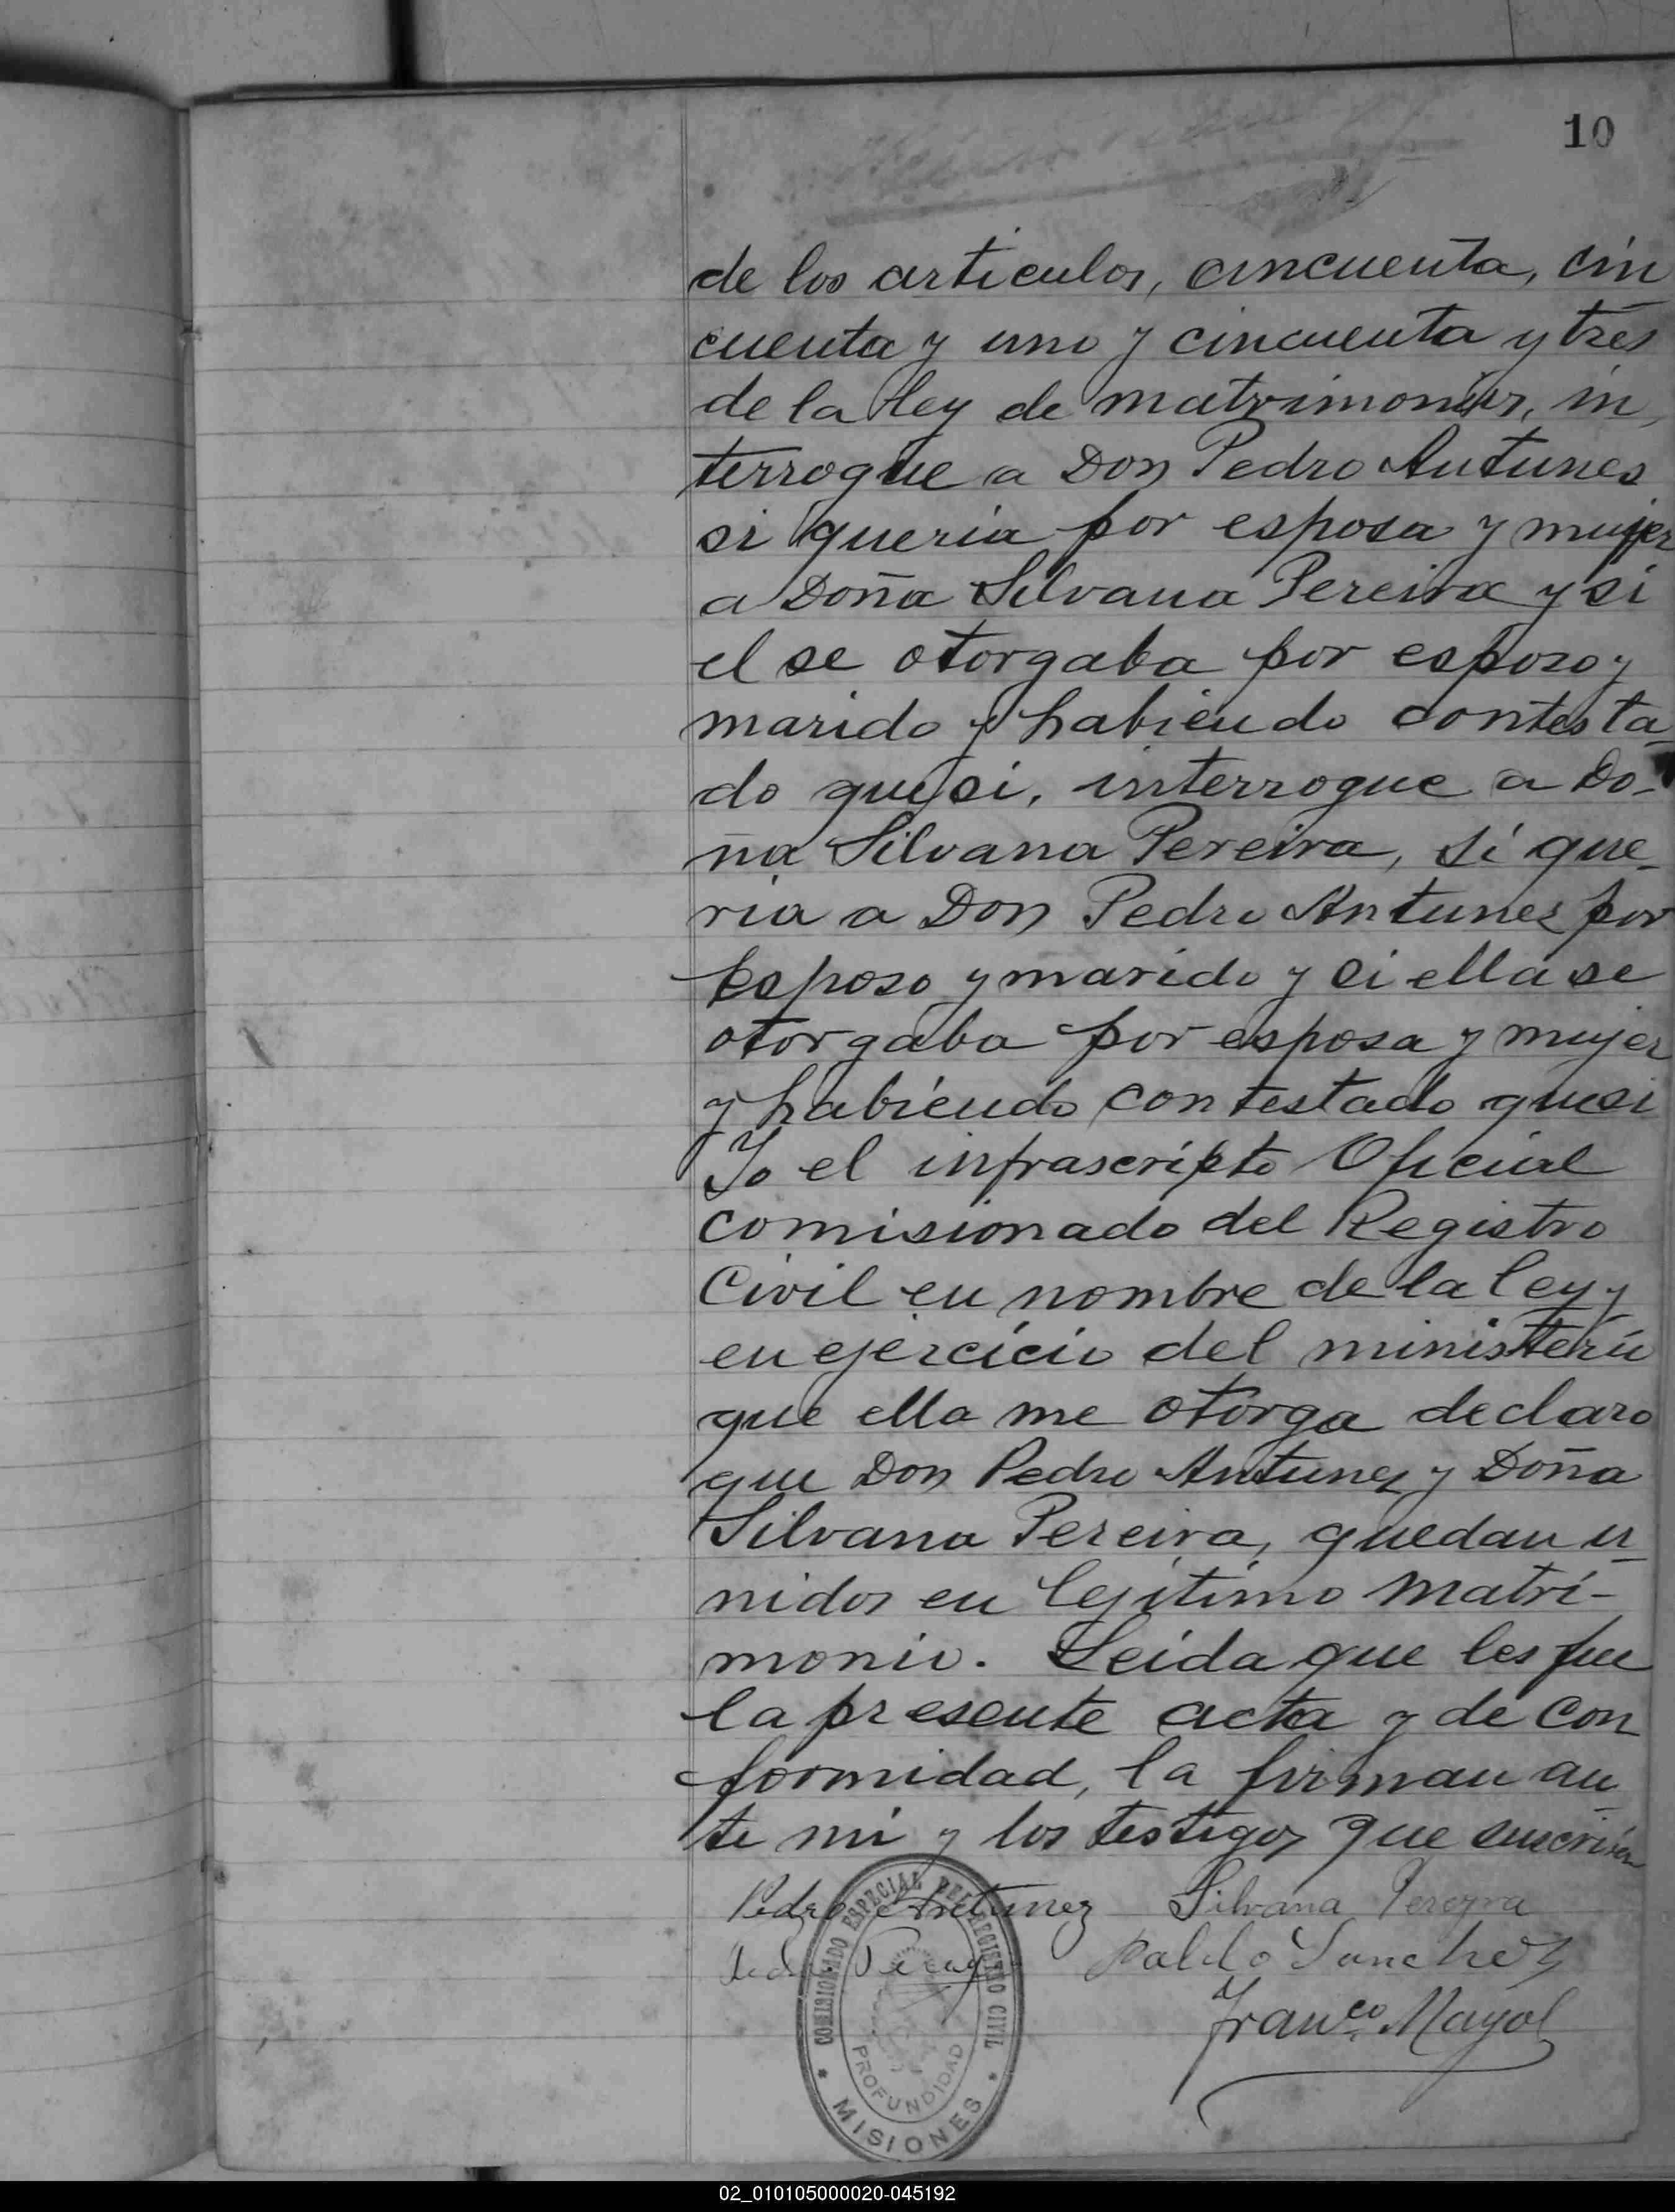 10
de los articulos, cincuenta, cin
cuenta y uno y cincuenta y tres
de la ley de matrimonios, in
terrogue a Don Pedro Antunes
si queria por esposa y mujer
a Doña Silvana Pereira y si
el se otorgaba por esposo y
marido y habiendo contesta
do que si, interrogue a Do-
ña Silvana Pereira, si que
ria a Don Pedro Antunez por
Esposo y marido y si ella se
otorgaba por esposa y mujer
y habiendo contestado que si
Yo el infrascripto Oficial
comisionado del Registro
Civil en nombre de la ley y
en ejercicio del ministerio
que ella me otorga declaro
que Don Pedro Antunez y Doña
Silvana Pereira, quedan u
nidos en legitimo matri-
monio. Leida que les fue
la presente acta y de con
formidad, la firman an
te mi y los testigos que suscriben
Pedro Antunez Silvana Pereyra
Pablo Sanchez
Franco. Mayol
COMISIONADO ESPECIAL DEL REGISTRO CIVIL
PROFUNDIDAD
* MISIONES *
02_010105000020-045192